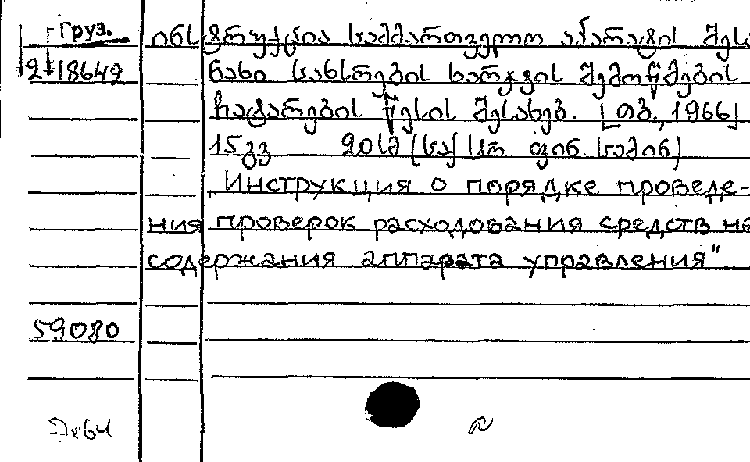 Груз.
2-18642
ინსტრუქცია სამმართველო აპარატის შესა
ნახი სახსრების ხარჯვის შემოწმების
ჩატარების წესის შესახებ. [თბ., 1966]
15 გვ 20სმ (საქ სსრ ფინ. სამინ)
„Инструкция о порядке проведе-
ния проверок расходования средств на
содержания аппарата управления"
59080